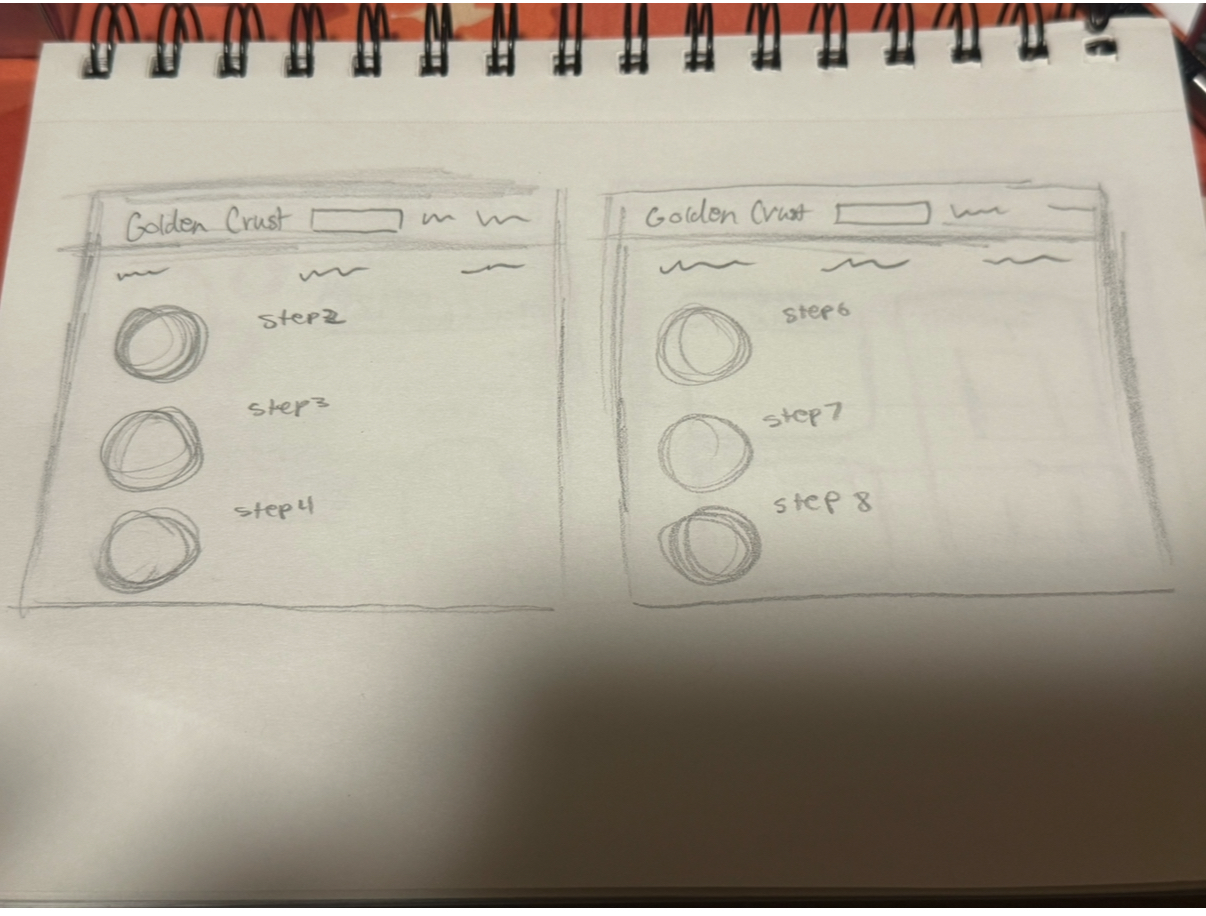 Golden Crust
step2
step3
step4
Golden Crust
step6
step7
step 8